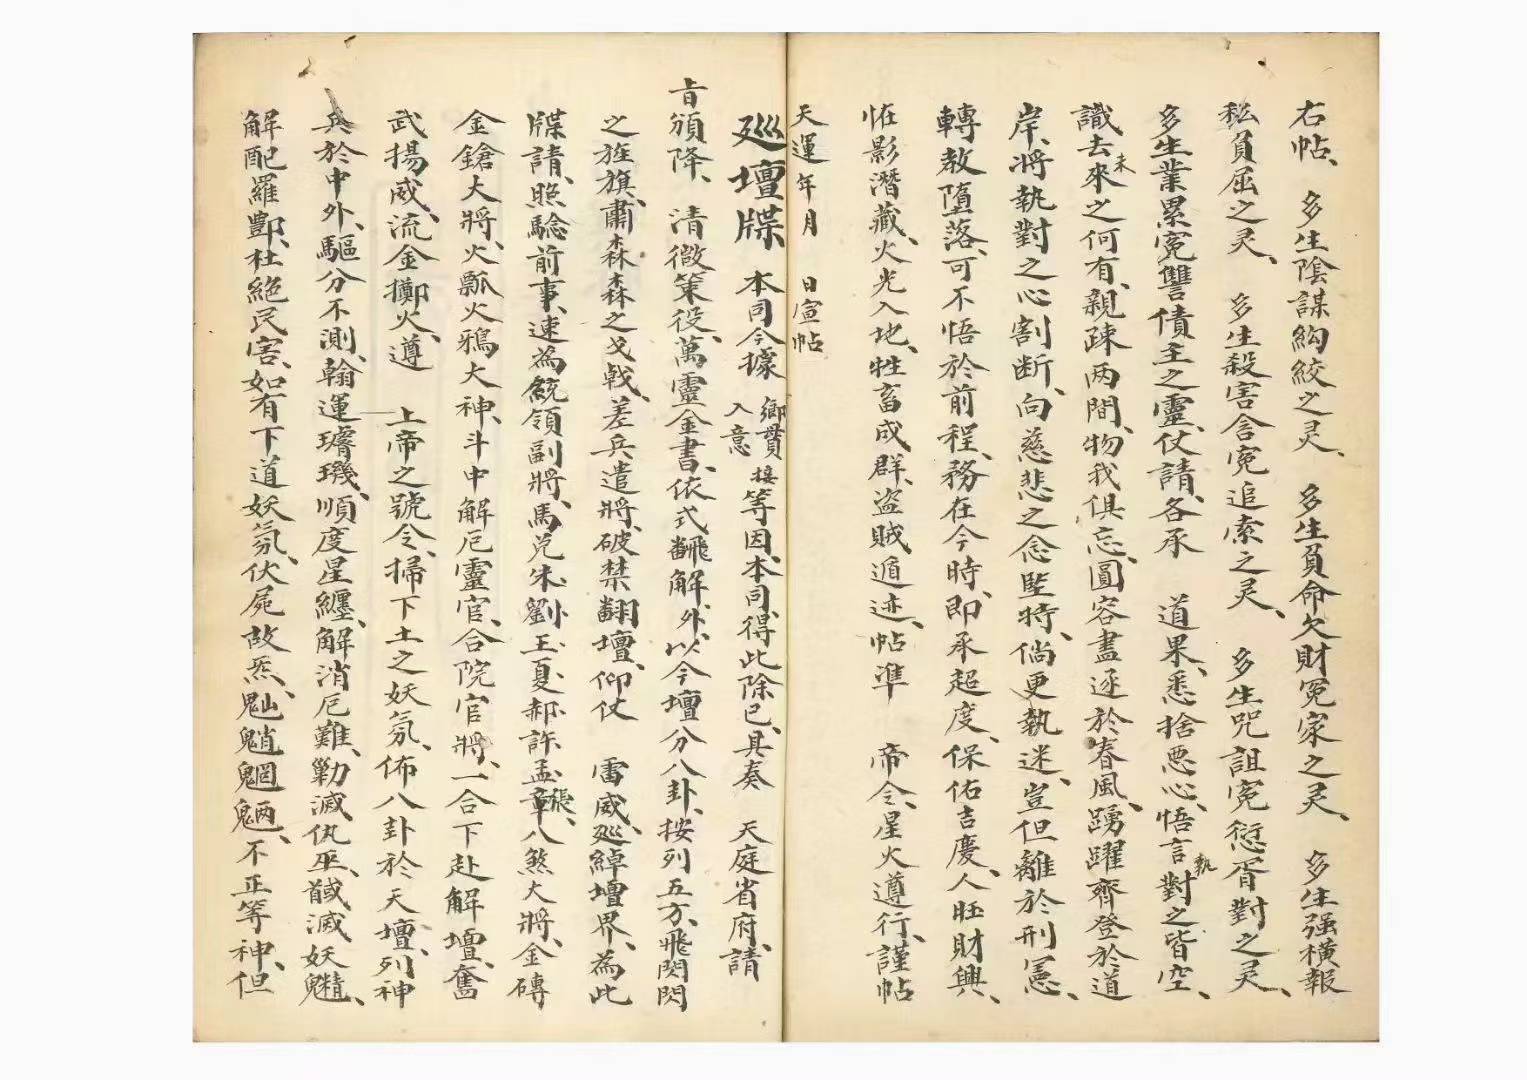 右帖、多生陰謀絢絞之灵、多生負命欠財冤家之灵、多生强橫報
私負屈之灵、多生殺害含冤追索之灵、多生咒詛冤愆胥對之灵、
多生業累冤讐債主之靈、仗請、各承 道果、悉捨悪心、悟言執對之皆空、
識去未來之何有、親疎两間、物我俱忘、圓容盡逐於春風、踴躍齊登於道
岸、將執對之心割断、向慈悲之念堅時、倘更執迷、豈但離於刑憲、
轉教堕落、可不悟於前程、務在今時、即承超度、保佑吉慶、人旺財興、
恠影潛藏、火光入地、牲畜成群、盗賊遁迹、帖準 帝令、星火遵行、謹帖
天運 年 月 日宣帖
廵壇牒 本司今據 鄉貫入意 接等因、本司得此除已、具奏 天庭省府、請
旨頒降、清微策役、萬靈金書、依式飜解外、以今壇分八卦、按列五方、飛閃閃
之旌旗、肅森森之戈戟、差兵遣將、破禁翻壇、仰仗 雷威、廵綽壇界、為此
牒請、照驗前事、速為統領副將、馬兊朱劉王夏郝許孟張章八煞大將、金磚
金鎗大將、火瓢火鴉大神、斗中解厄靈官、合院官將、一合下赴解壇、奮
武揚威、流金擲火、遵 上帝之號令、掃下土之妖氛、佈八卦於天壇、列神
兵於中外、驅分不測、翰運璿璣、順度星纏、解消厄難、勦滅仇巫、馘滅妖魑、
解配羅酆、杜絕民害、如有下道妖氛、伏屍故炁、魈魍魎、不正等神、但